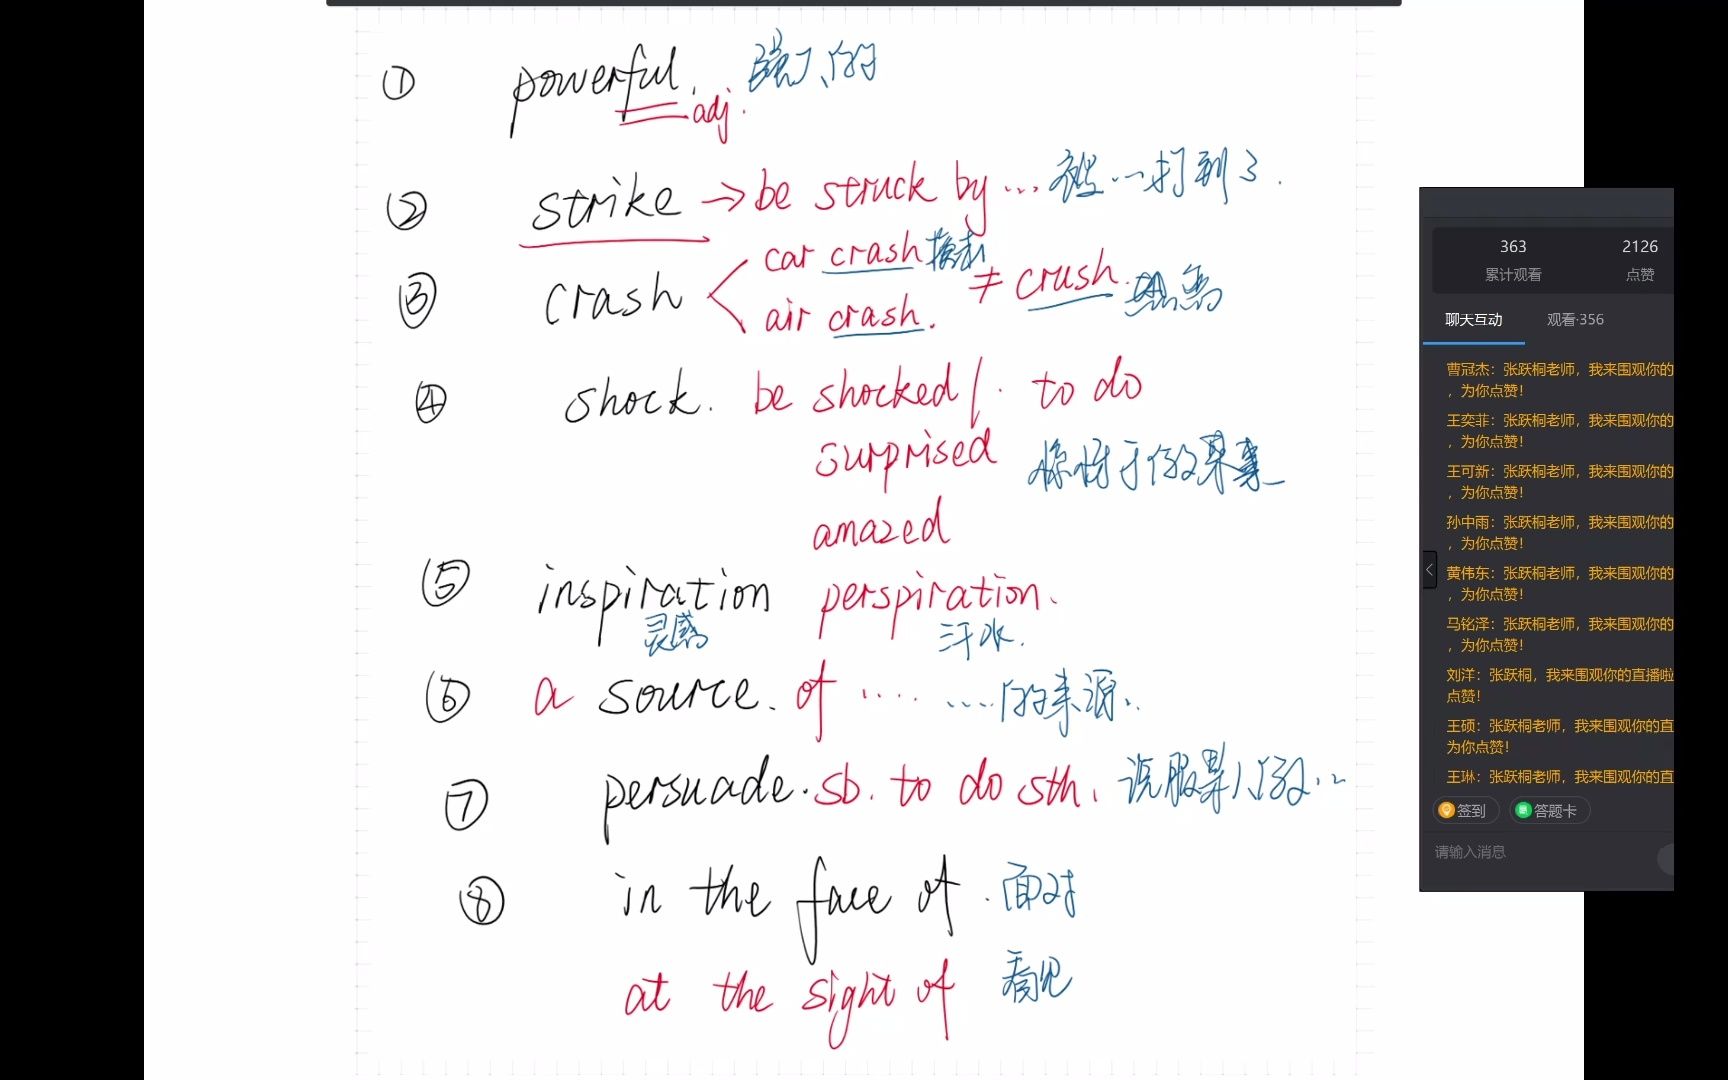 ① powerful. 强大的
adj.
② strike → be struck by ... 被...打到了.
③ crash car crash 撞击 ≠ crush.
air crash.
④ shock. be shocked / to do
surprised 惊讶于做某事
amazed
⑤ inspiration perspiration.
灵感 汗水.
⑥ a source. of ..... ....的来源..
⑦ persuade. sb. to do sth. 说服某人做...
⑧ in the face of . 面对
at the sight of 看见
363 2126
累计观看 点赞
聊天互动 观看·356
曹冠杰：张跃桐老师，我来围观你的
，为你点赞！
王奕菲：张跃桐老师，我来围观你的
，为你点赞！
王可新：张跃桐老师，我来围观你的
，为你点赞！
孙中雨：张跃桐老师，我来围观你的
，为你点赞！
黄伟东：张跃桐老师，我来围观你的
，为你点赞！
马铭泽：张跃桐老师，我来围观你的
，为你点赞！
刘洋：张跃桐，我来围观你的直播啦
点赞！
王硕：张跃桐老师，我来围观你的直
为你点赞！
王琳：张跃桐老师，我来围观你的直
签到 答题卡
请输入消息